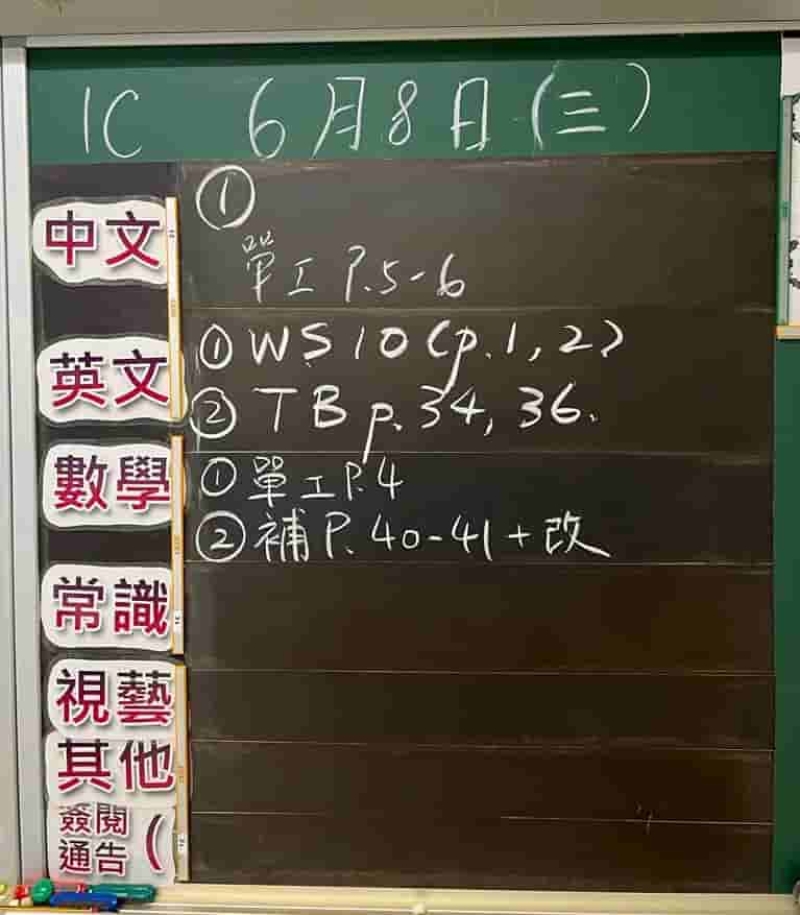 1C 6月8日(三)
中文 ①
單工 P.5-6
英文 ① WS 10 (p.1, 2)
② TB p.34, 36.
數學 ① 單工 P.4
② 補 P.40-41 + 改
常識
視藝
其他
簽閱
通告 (